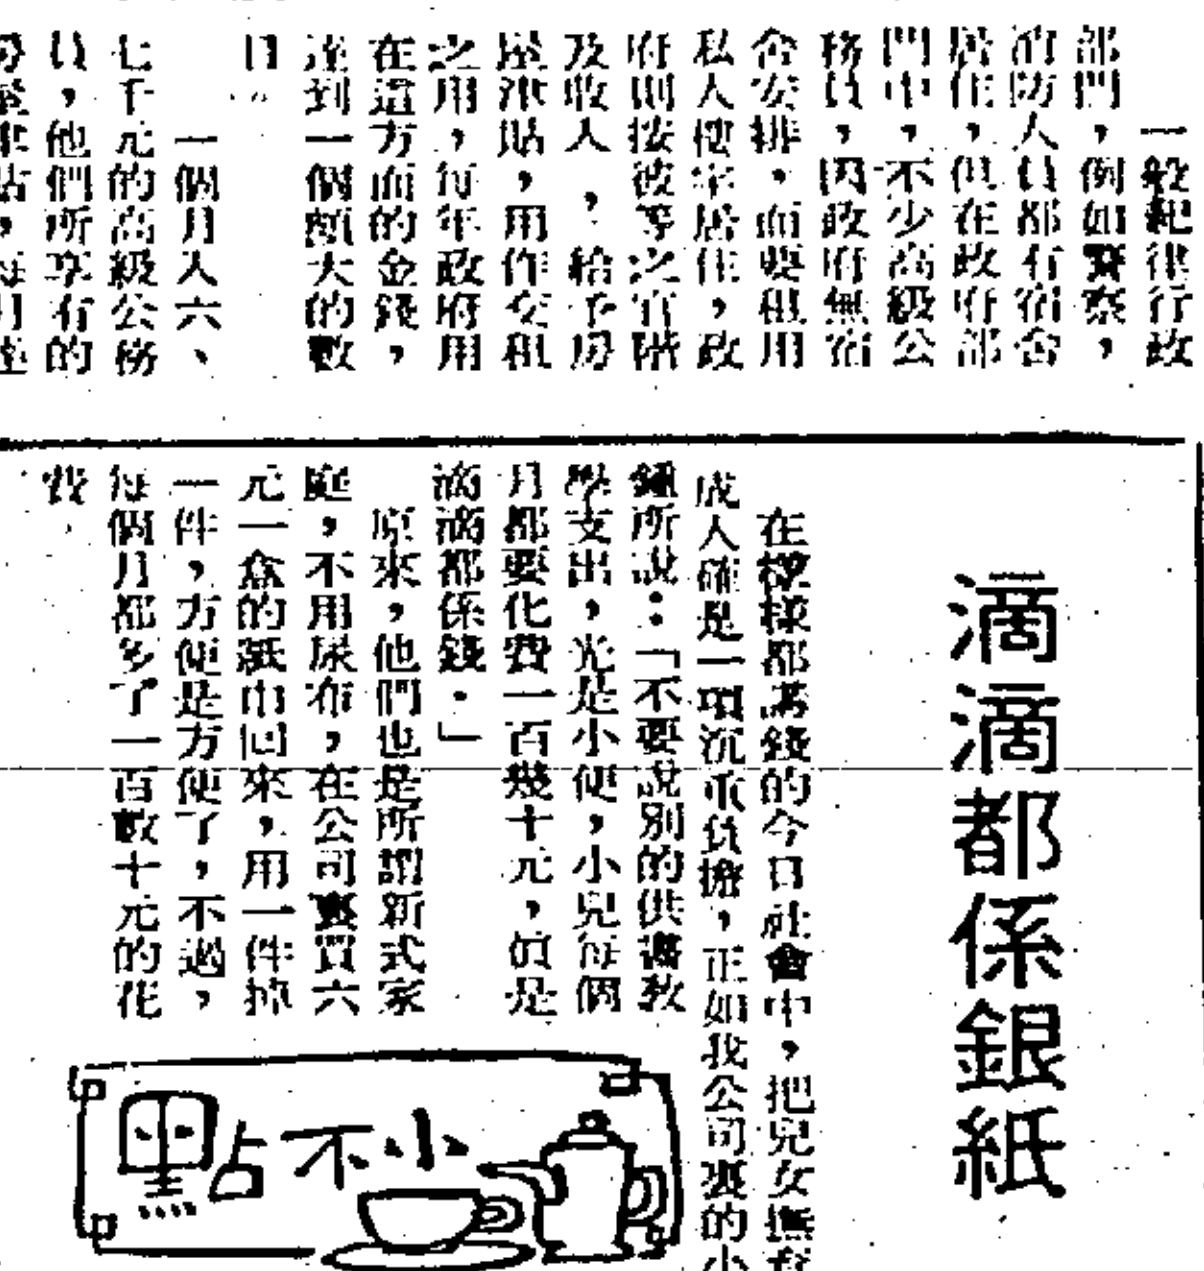 一般紀律行政
部門，例如警察，
消防人員都有宿舍
居住，但在政府部
門中，不少高級公
務員，因政府無宿
舍安排，而要租用
私人樓宇居住，政
府則按彼等之官階
及收入，給予房
屋津貼，用作交租
之用，每年政府用
在這方面的金錢，
達到一個頗大的數
目。
一個月入六、
七千元的高級公務
員，他們所享有的
房屋津貼，每月達
滴滴都係銀紙
在樣樣都講錢的今日社會中，把兒女撫育
成人確是一項沉重負擔，正如我公司裏的小
鍾所說：「不要說別的供書教
學支出，光是小便，小兒每個
月都要化費一百幾十元，眞是
滴滴都係錢。」
原來，他們也是所謂新式家
庭，不用尿布，在公司裏買六
元一盒的紙巾回來，用一件掉
一件，方便是方便了，不過，
每個月都多了一百數十元的花
費。
小不點